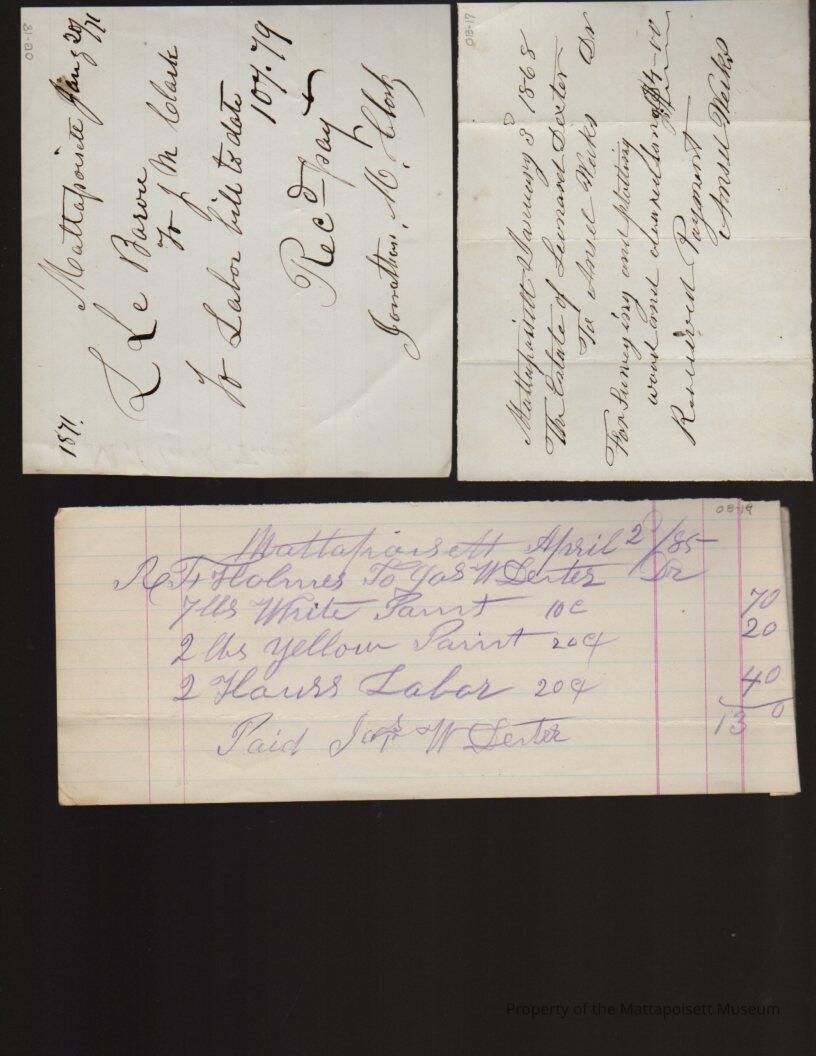 OB-18
1871.
Mattapoisett Jany 20/71
L Le Baron
To J M Clark
To Labor bill to date
107.79
Recd pay
Jonathan. M. Clark
OB-17
Mattapoisett January 3 1868
The Estate of Leonard Dexter
To Ansel Weeks Dr
For surveying and plotting
wood and cleared land $4-00
Received Payment
Ansel Weeks
OB-19
Mattapoisett April 2/85
R F Holmes To Jas W Dexter Dr
7 lbs White Paint 10c 70
2 lbs Yellow Paint 20
2 Hours Labor 20¢ 40
130
Paid Jas W Dexter
Property of the Mattapoisett Museum